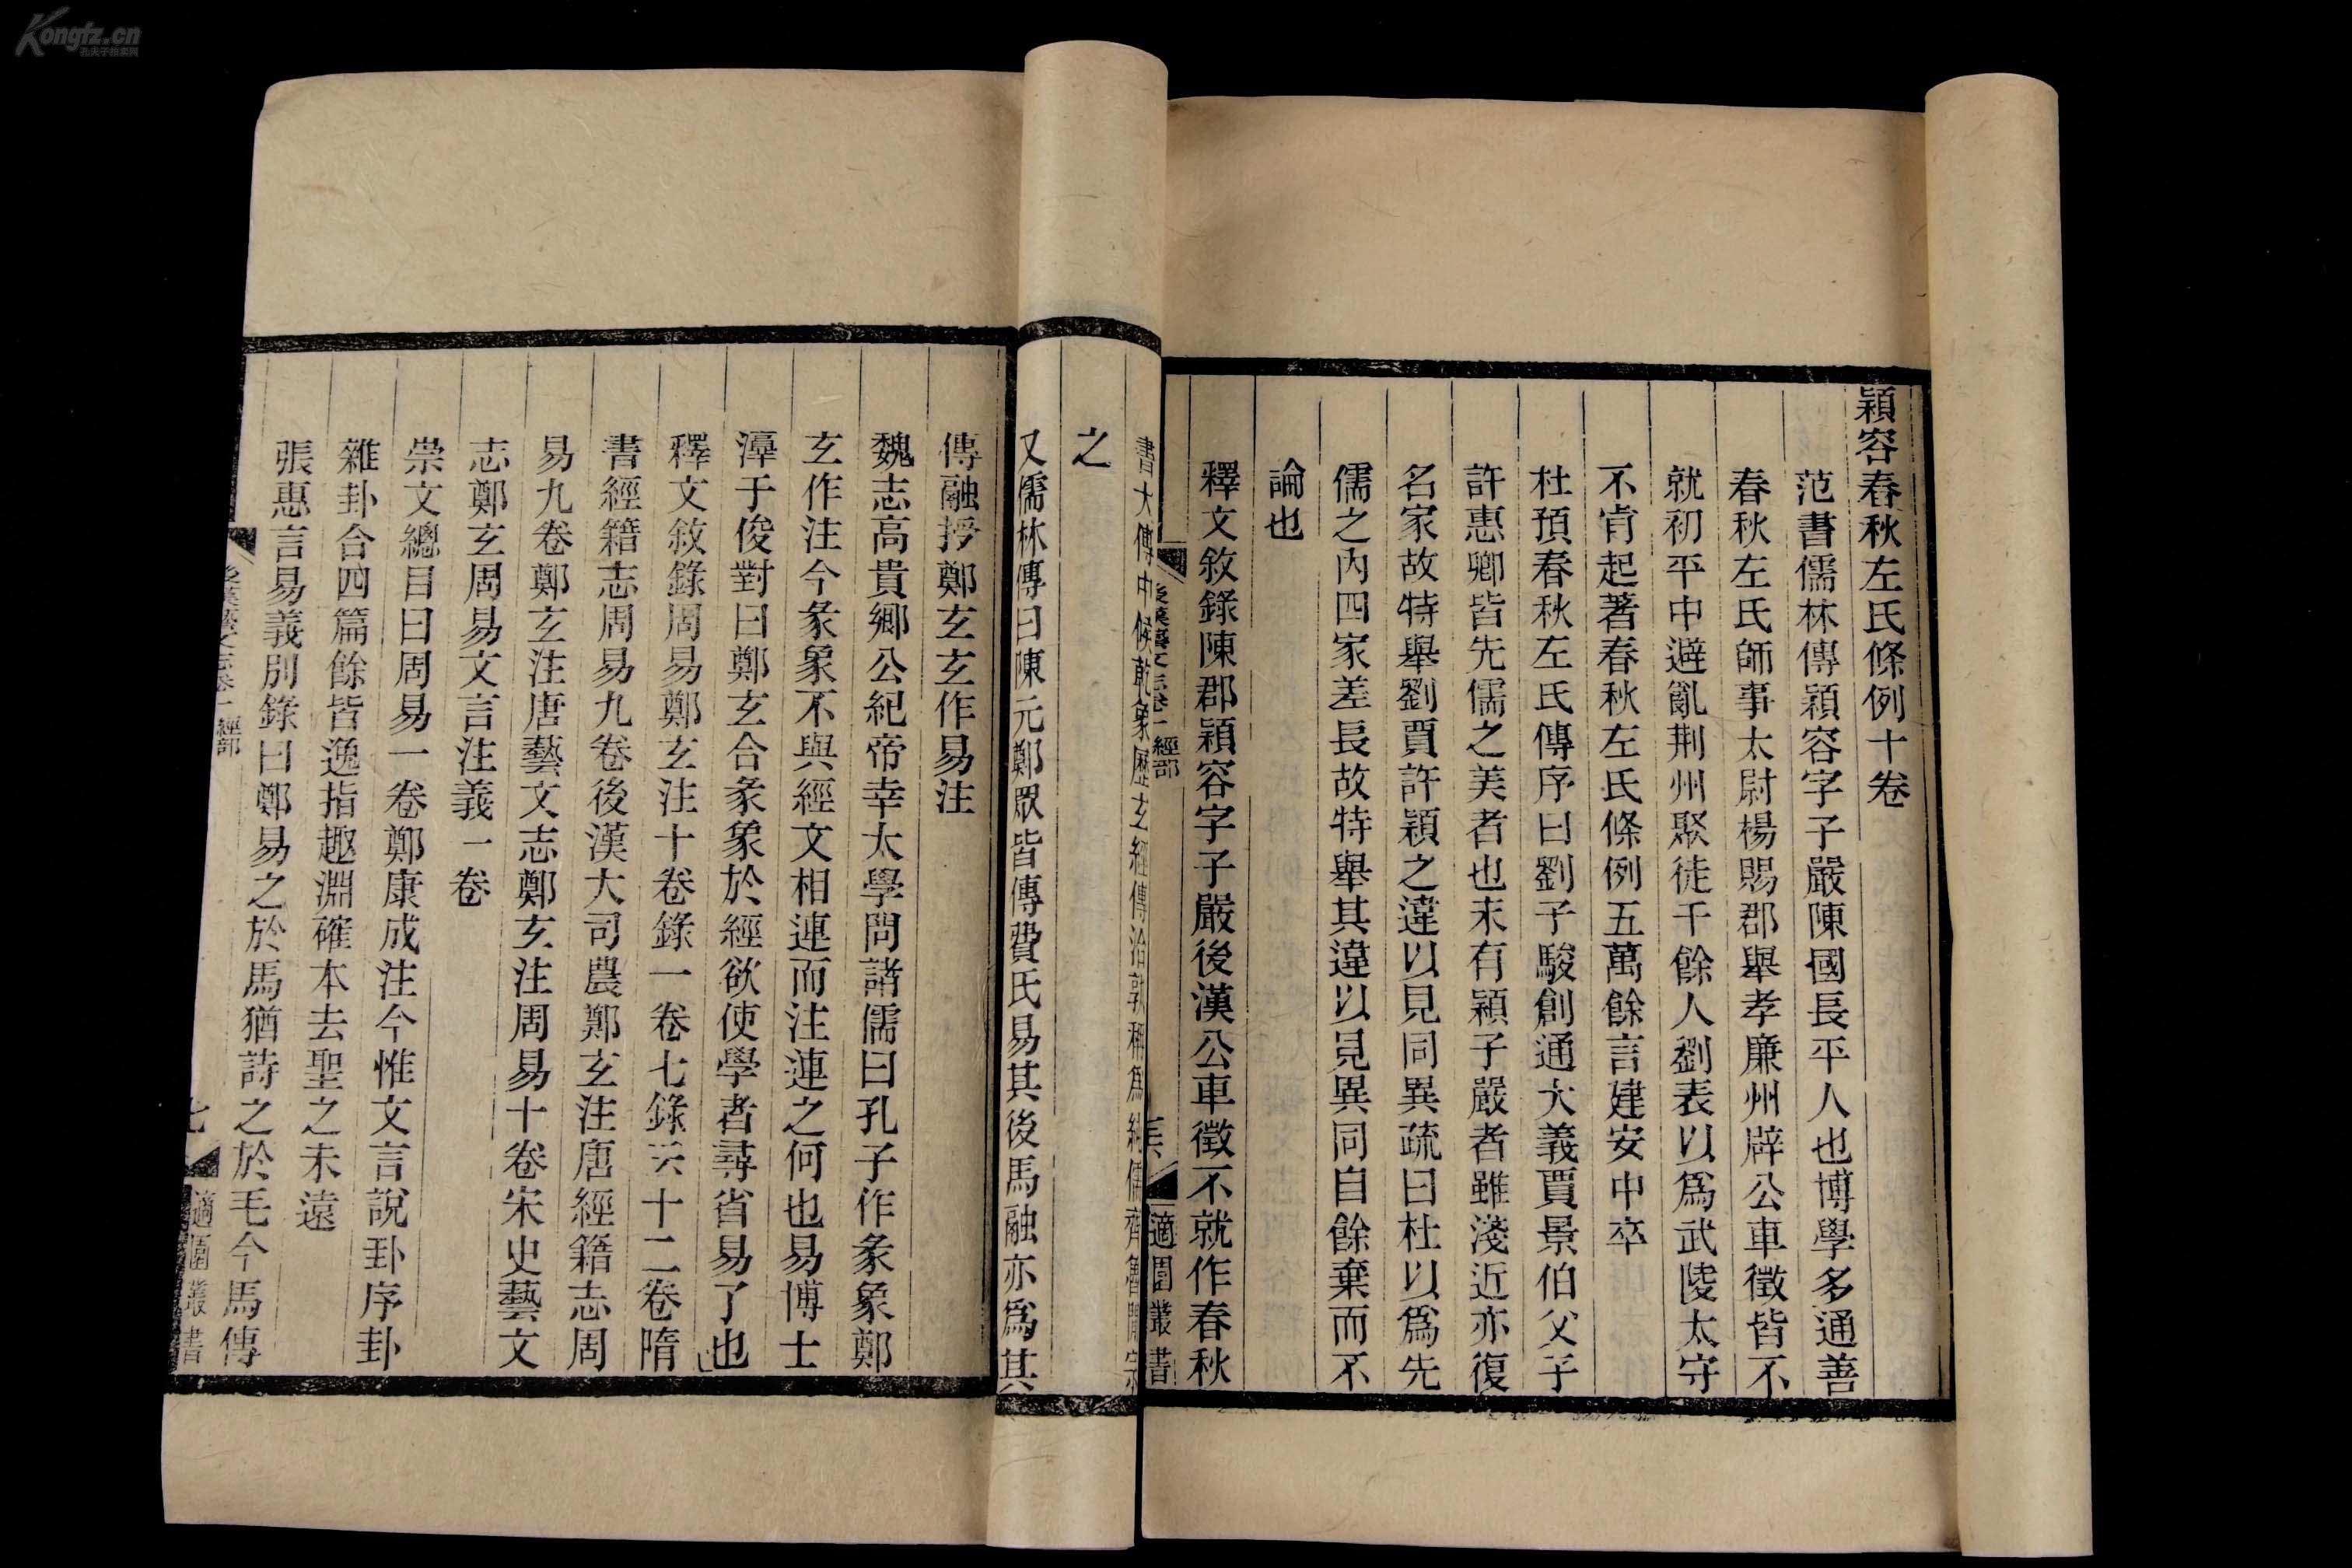 Kongfz.cn
孔夫子拍卖网
潁容春秋左氏條例十卷
范書儒林傳潁容字子嚴陳國長平人也博學多通善
春秋左氏師事太尉楊賜郡舉孝廉州辟公車徵皆不
就初平中避亂荆州聚徒千餘人劉表以爲武陵太守
不肯起著春秋左氏條例五萬餘言建安中卒
杜預春秋左氏傳序曰劉子駿創通大義賈景伯父子
許惠卿皆先儒之美者也末有潁子嚴者雖淺近亦復
名家故特舉劉賈許潁之違以見同異疏曰杜以爲先
儒之內四家差長故特舉其違以見異同自餘棄而不
論也
釋文敘錄陳郡潁容字子嚴後漢公車徵不就作春秋
後漢藝文志卷一 經部
適園叢書
書大傳中候乾象歷玄經傳洽孰稱爲純儒齊魯間宗
之
又儒林傳曰陳元鄭眾皆傳費氏易其後馬融亦爲其
傳融授鄭玄玄作易注
魏志高貴鄉公紀帝幸太學問諸儒曰孔子作彖象鄭
玄作注今彖象不與經文相連而注連之何也易博士
淳于俊對曰鄭玄合彖象於經欲使學者尋省易了也
釋文敘錄周易鄭玄注十卷錄一卷七錄云十二卷隋
書經籍志周易九卷後漢大司農鄭玄注唐經籍志周
易九卷鄭玄注唐藝文志鄭玄注周易十卷宋史藝文
志鄭玄周易文言注義一卷
崇文總目曰周易一卷鄭康成注今惟文言說卦序卦
雜卦合四篇餘皆逸指趣淵確本去聖之未遠
張惠言易義別錄曰鄭易之於馬猶詩之於毛今馬傳
後漢藝文志卷一 經部
七
適園叢書